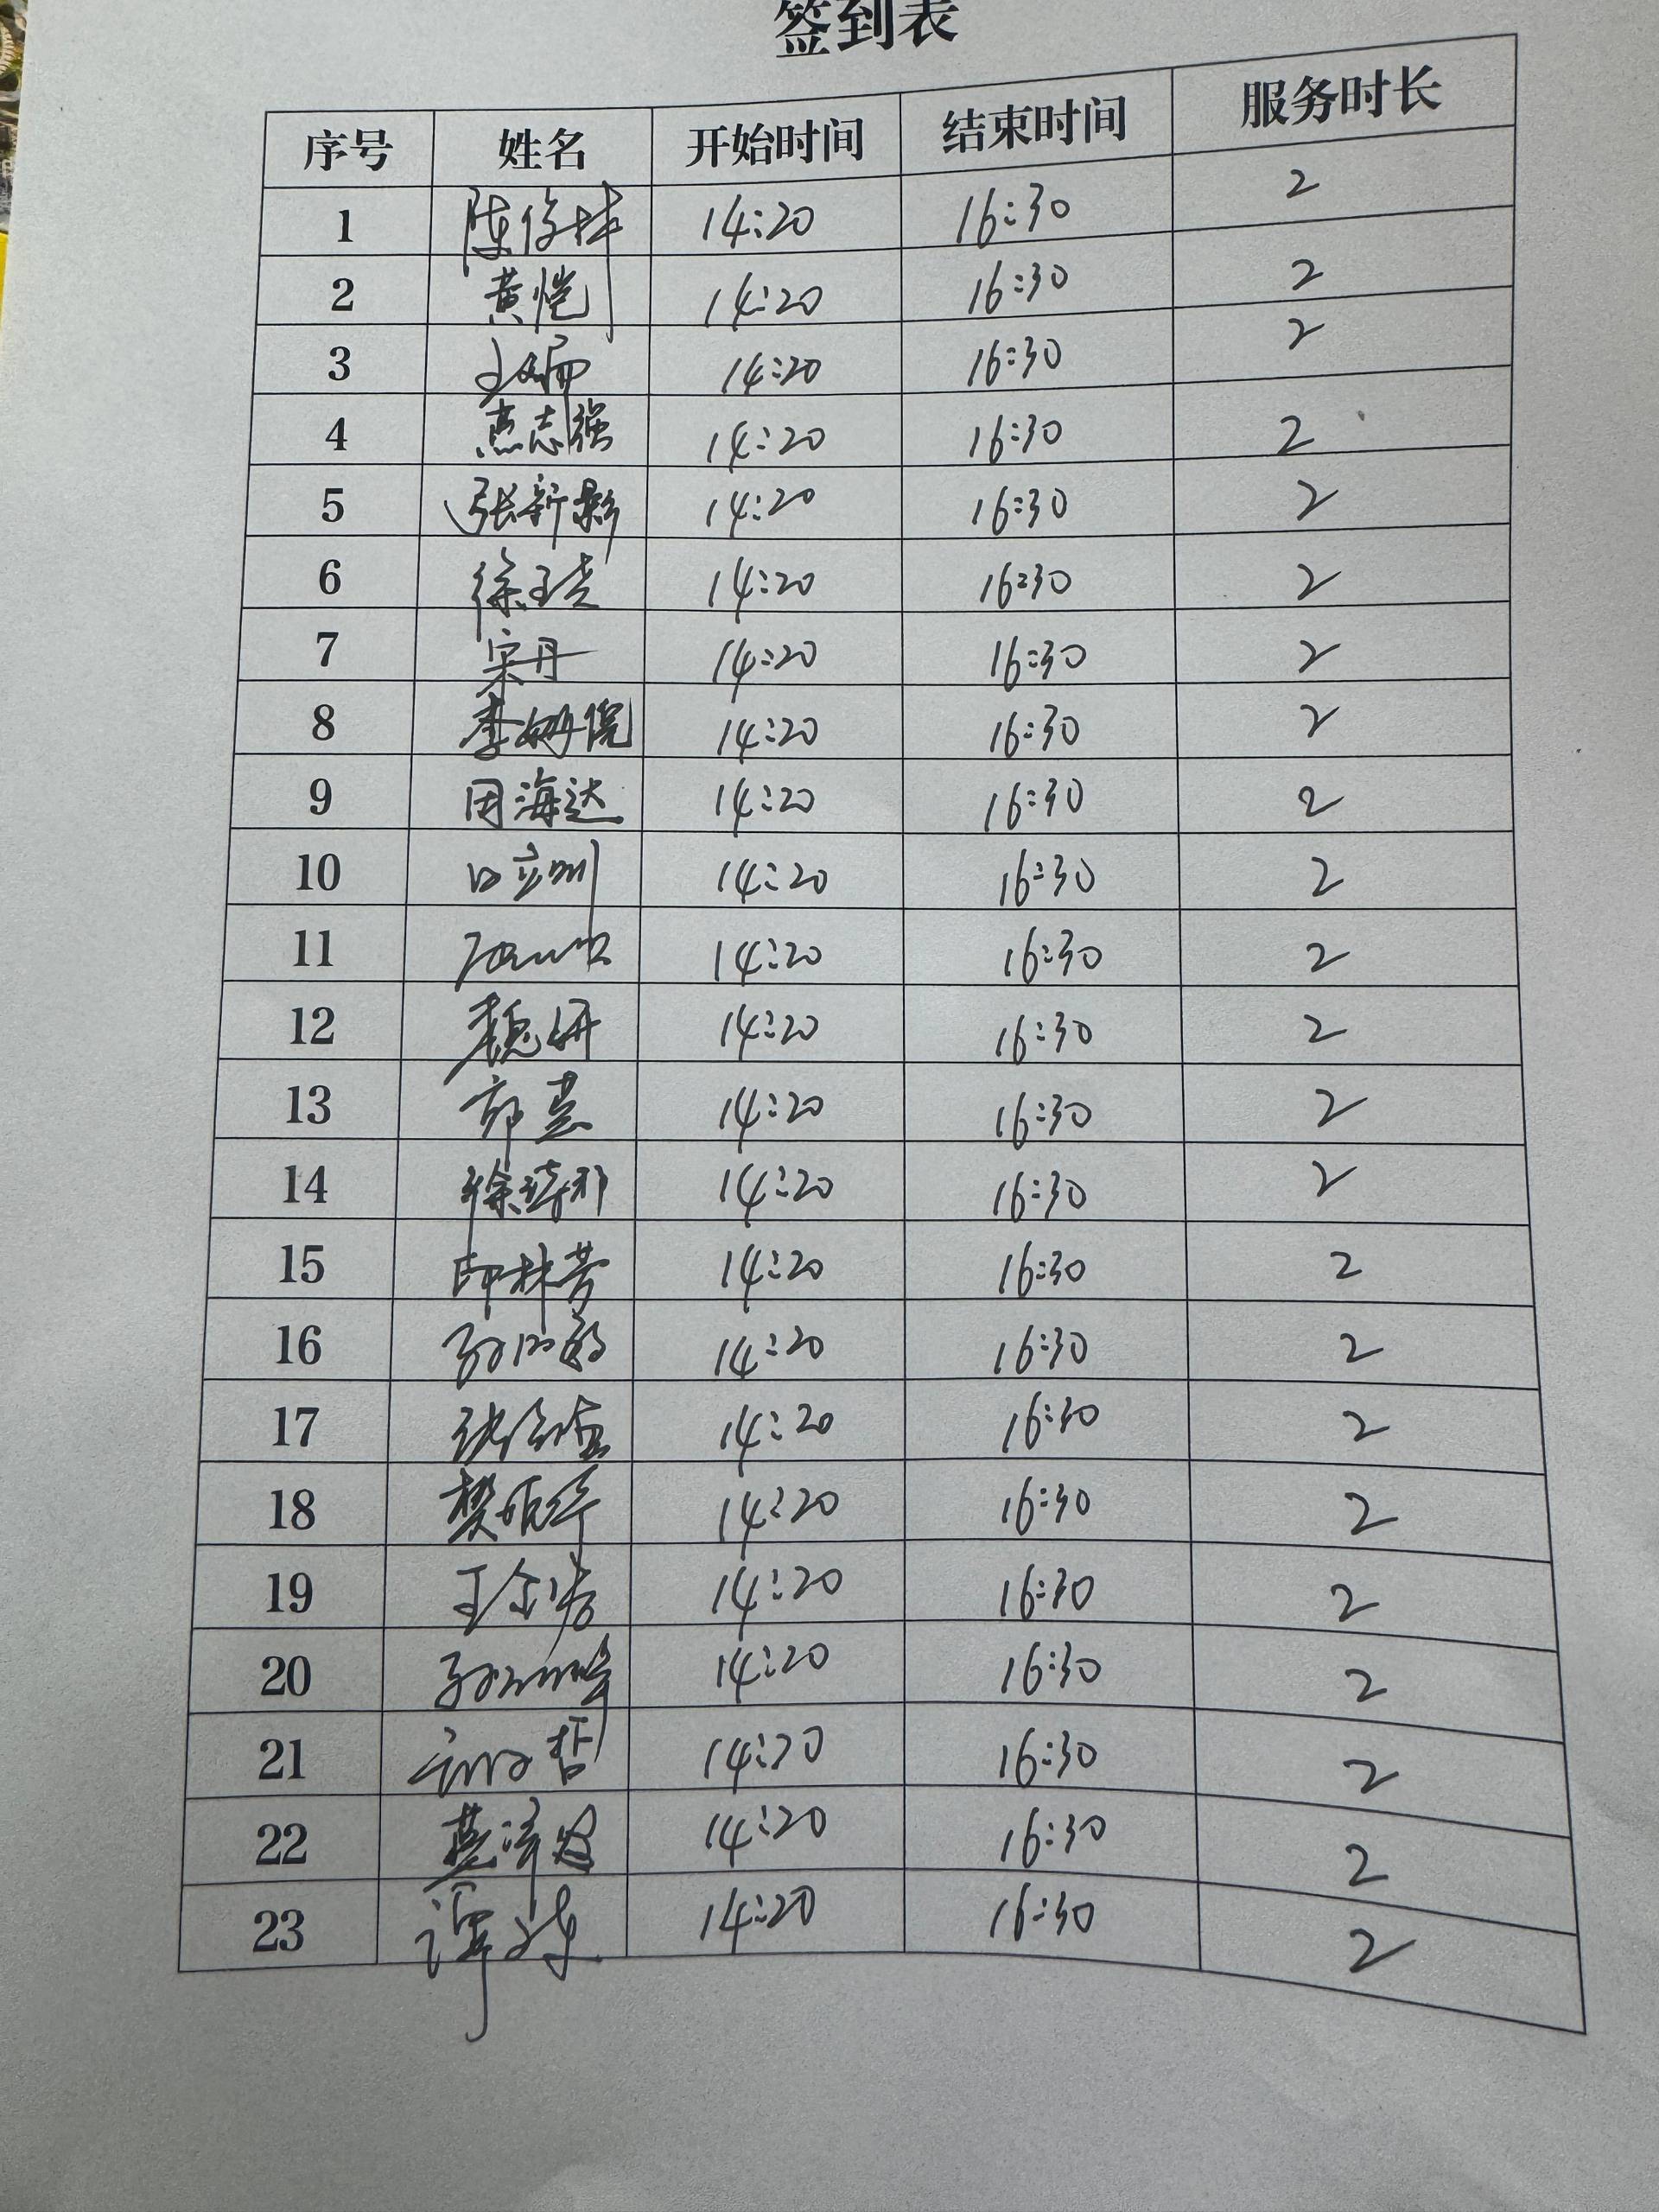 签到表
序号 姓名 开始时间 结束时间 服务时长
1 陈俊坤 14:20 16:30 2
2 黄恺 14:20 16:30 2
3 14:20 16:30 2
4 焦志强 14:20 16:30 2
5 张新影 14:20 16:30 2
6 徐 14:20 16:30 2
7 宋丹 14:20 16:30 2
8 李姗倪 14:20 16:30 2
9 周海达 14:20 16:30 2
10 14:20 16:30 2
11 14:20 16:30 2
12 魏妍 14:20 16:30 2
13 14:20 16:30 2
14 徐 14:20 16:30 2
15 印林芳 14:20 16:30 2
16 孙 14:20 16:30 2
17 张 14:20 16:30 2
18 樊 14:20 16:30 2
19 王 14:20 16:30 2
20 孙 14:20 16:30 2
21 哲 14:20 16:30 2
22 14:20 16:30 2
23 谭 14:20 16:30 2